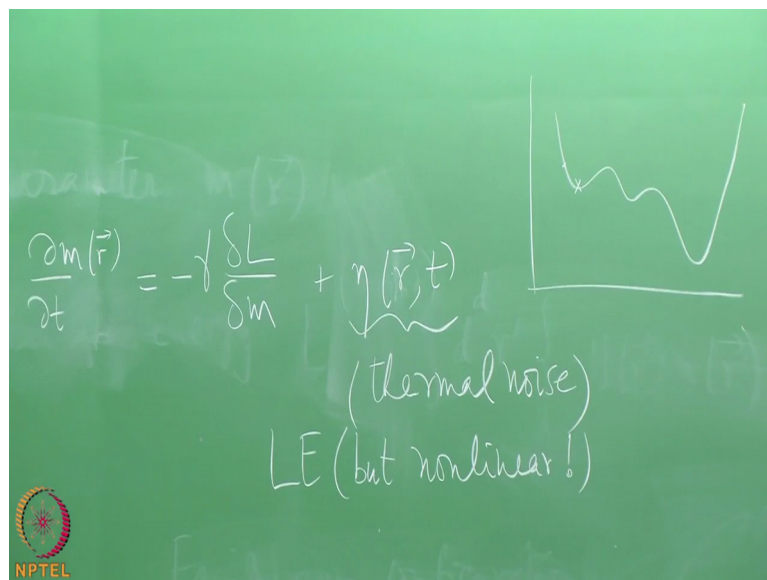 ∂m(r⃗)/∂t = -γ δL/δm + η(r⃗,t)
(thermal noise)
LE (but nonlinear!)
NPTEL